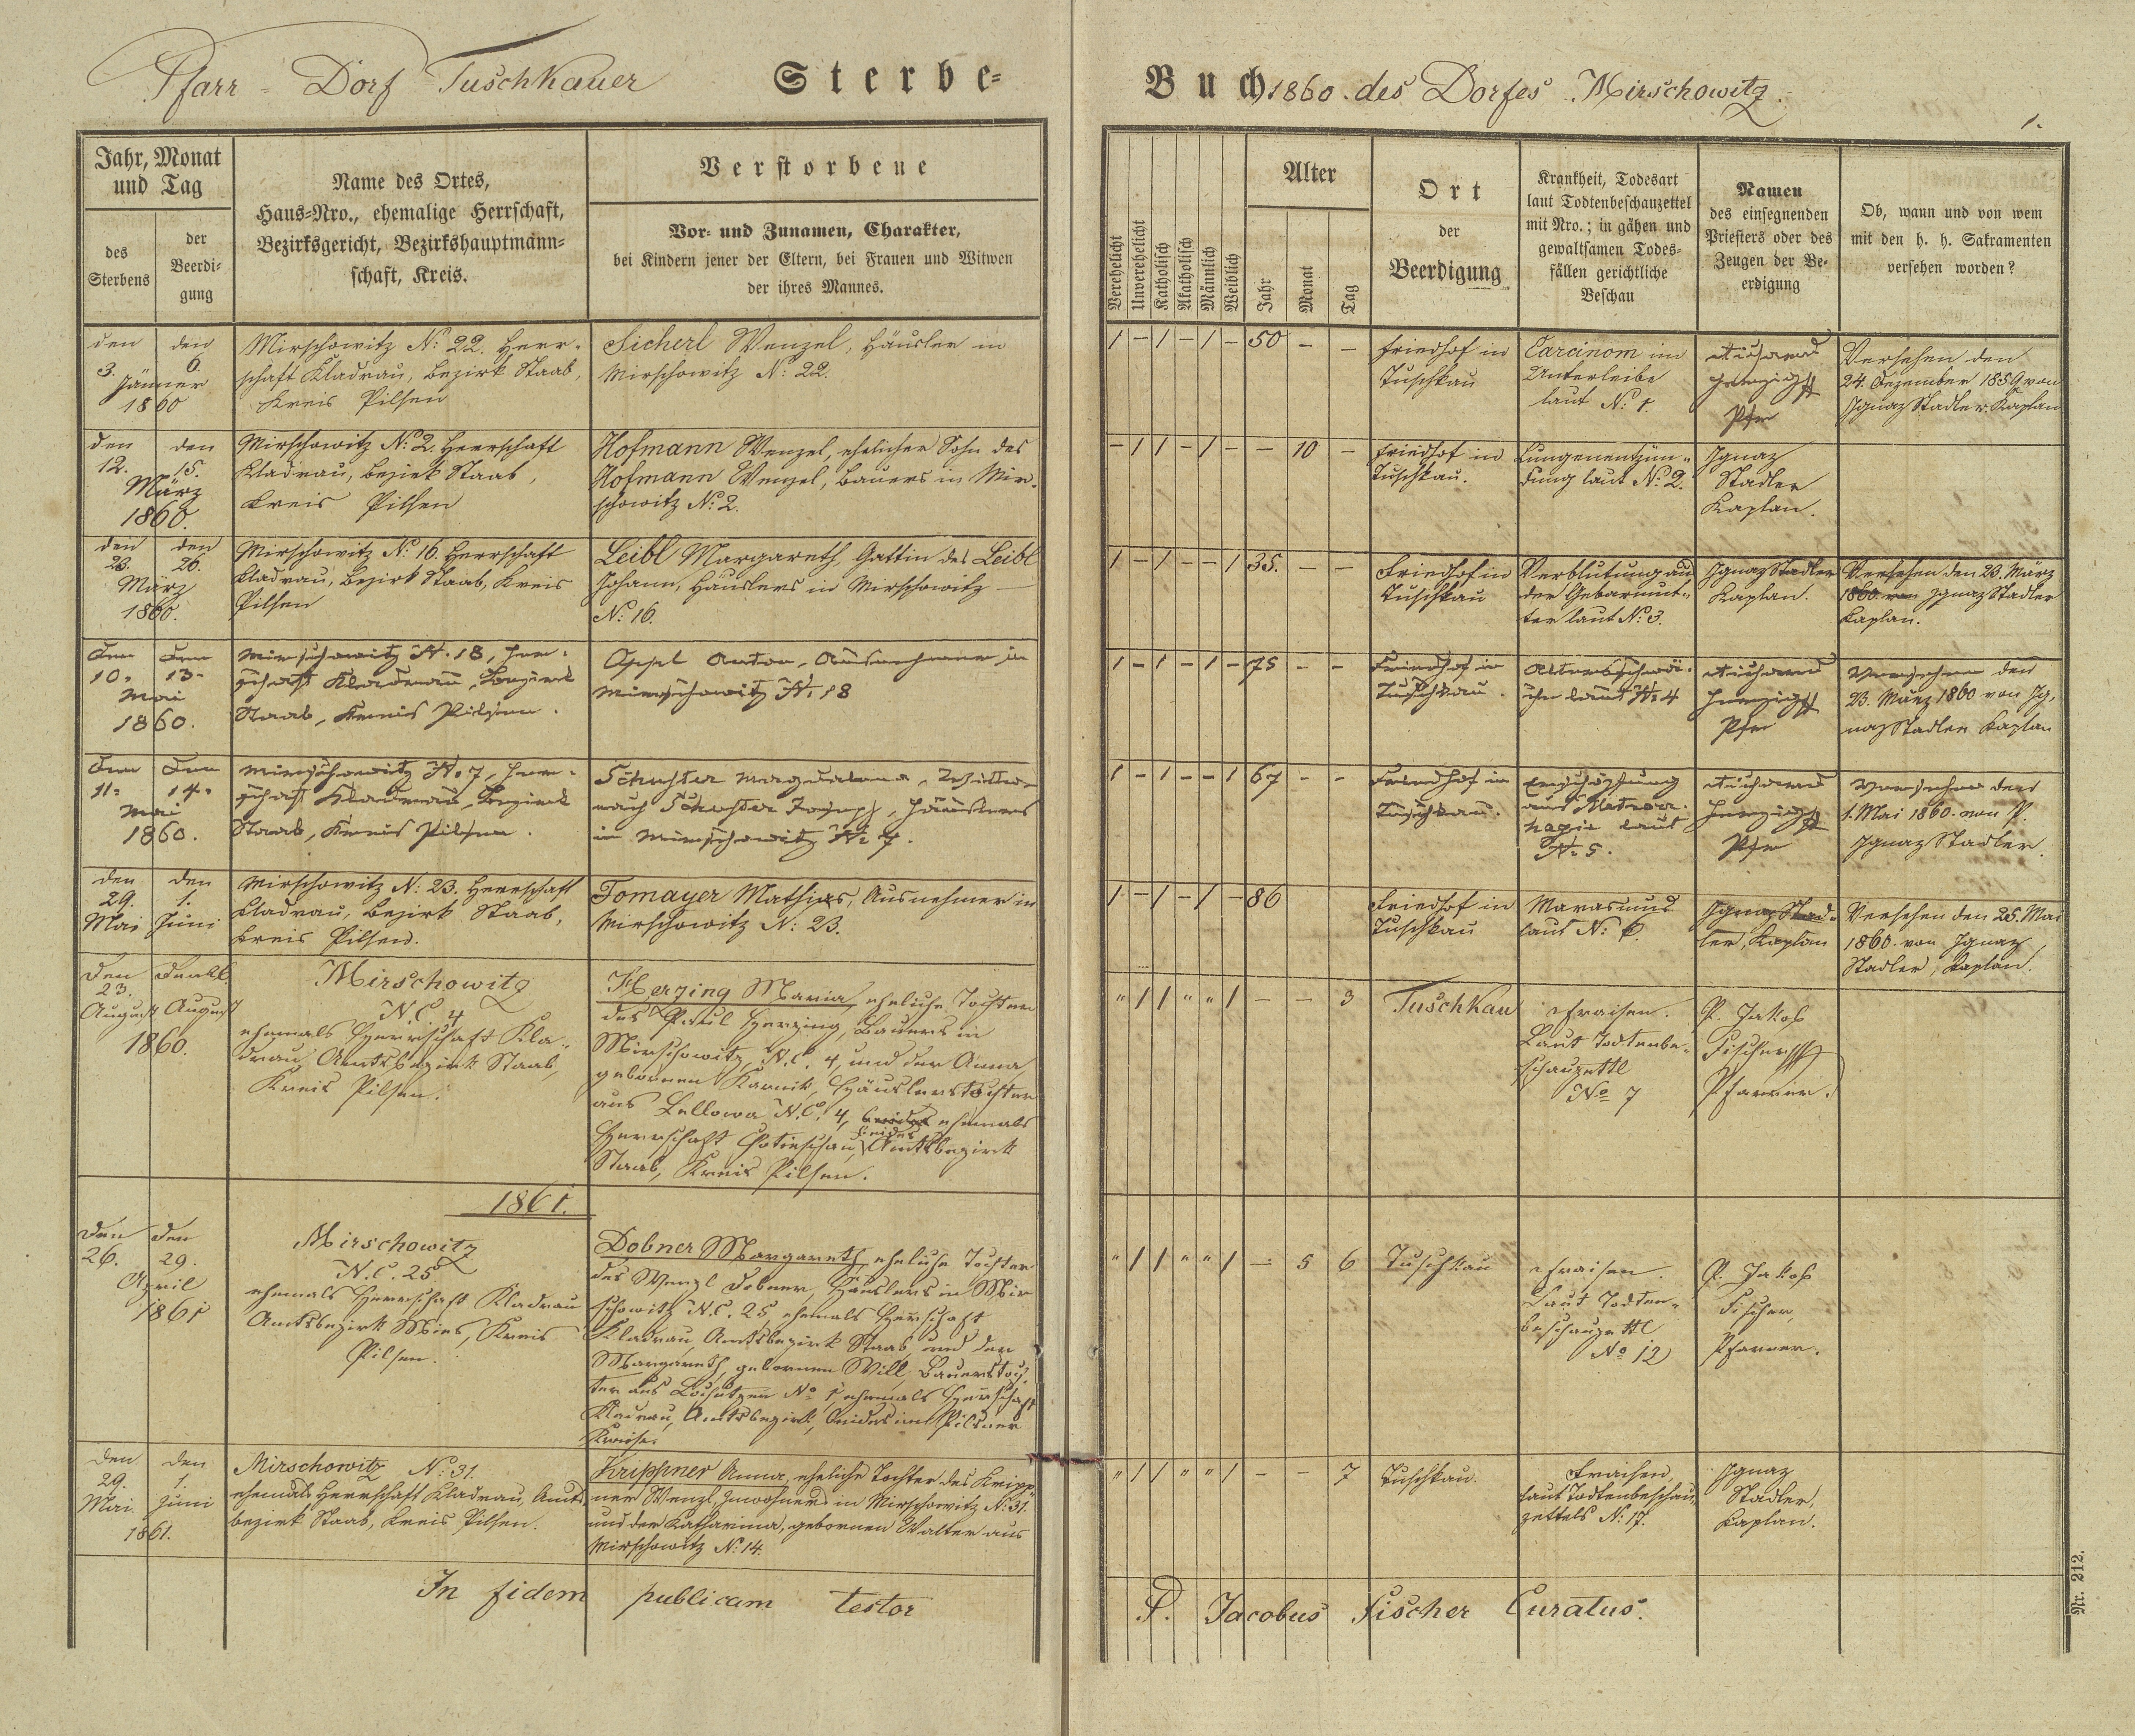 Pfarr - Dorf Tuschkauer Sterbe-
Buch 1860 des Dorfes Mirschowitz.
1.
Jahr, Monat
und Tag
des
Sterbens
der
Beerdi-
gung
Name des Ortes,
Haus-Nro., ehemalige Herrschaft,
Bezirksgericht, Bezirkshauptmann-
schaft, Kreis.
Verstorbene
Vor- und Zunamen, Charakter,
bei Kindern jener der Eltern, bei Frauen und Witwen
der ihres Mannes.
Verehelicht
Unverehelicht
Katholisch
Akatholisch
Männlich
Weiblich
Alter
Jahr
Monat
Tag
Ort
der
Beerdigung
Krankheit, Todesart
laut Todtenbeschauzettel
mit Nro.; in gähen und
gewaltsamen Todes-
fällen gerichtliche
Beschau
Namen
des einsegnenden
Priesters oder des
Zeugen der Be-
erdigung
Ob, wann und von wem
mit den h. h. Sakramenten
versehen worden?
den den
3. 6.
Jänner
1860
Mirschowitz N: 22. Herr-
schaft Kladrau, Bezirk Staab,
Kreis Pilsen
Sicherl Wenzel, Häusler in
Mirschowitz N: 22.
1 - 1 - 1 - 50 - -
Friedhof in
Tuschkau
Carcinom im
Unterleibe
laut N: 1.
Pfr
Versehen den
24. Dezember 1859 von
Ignaz Stadler Kaplan
den den
12. 15.
März
1860.
Mirschowitz N: 2. Herrschaft
Kladrau, Bezirk Staab,
Kreis Pilsen
Hofmann Wenzel, ehelicher Sohn des
Hofmann Wenzel, Bauers in Mir-
schowitz N: 2.
- 1 1 - 1 - - 10 -
Friedhof in
Tuschkau.
Lungenentzün-
dung laut N: 2.
Ignaz
Stadler
Kaplan.
den den
23. 26.
März
1860.
Mirschowitz N: 16. Herrschaft
Kladrau, Bezirk Staab, Kreis
Pilsen
Leibl Margareth, Gattin des Leibl
Johann, Häuslers in Mirschowitz
N: 16.
1 - 1 - - 1 35. - -
Friedhof in
Tuschkau
Verblutung aus
der Gebärmut-
ter laut N: 3.
Ignaz Stadler
Kaplan.
Versehen den 23. März
1860. von Ignaz Stadler
Kaplan.
Den Den
10. 13.
Mai
1860.
Mirschowitz N. 18, Herr-
schaft Kladrau, Bezirk
Staab, Kreis Pilsen.
Appl Anton, Ausnehmer in
Mirschowitz N. 18
1 - 1 - 1 - 75 - -
Friedhof in
Tuschkau.
Altersschwä-
che laut N: 4
Pfr
Versehen den
23. März 1860 von Ig-
naz Stadler Kaplan
Den Den
11. 14.
Mai
1860.
Mirschowitz N. 7, Herr-
schaft Kladrau, Bezirk
Staab, Kreis Pilsen.
Schuster Magdalena, Witwe
nach Schuster Joseph, Häuslers
in Mirschowitz N. 7.
1 - 1 - - 1 67 - -
Friedhof in
Tuschkau.
Erschöpfung
aus Metror-
hagie laut
N. 5.
Pfr
Versehen den
1. Mai 1860. von P.
Ignaz Stadler.
den den
29. 1.
Mai Juni
Mirschowitz N: 23. Herrschaft
Kladrau, Bezirk Staab,
Kreis Pilsen.
Tomayer Mathias, Ausnehmer in
Mirschowitz N: 23.
1 - 1 - 1 - 86
Friedhof in
Tuschkau
Marasmus
laut N: 6.
Ignaz Stad-
ler, Kaplan
Versehen den 25. Mai
1860. von Ignaz
Stadler, Kaplan.
Den
23.
August August
1860.
Mirschowitz
N.C. 4
ehemals Herrschaft Kla-
drau, Amtsbezirk Staab,
Kreis Pilsen.
Herzing Maria, eheliche Tochter
des Paul Herzing, Bauers in
Mirschowitz, N.C. 4, und der Anna
gebornen Karnik, Häuslerstochter
aus Lellowa N.C. 4, ehemals
Herrschaft Chotieschau, beides Amtsbezirk
Staab, Kreis Pilsen.
" 1 1 " " 1 - - 3
Tuschkau
Fraisen.
Laut Todtenbe-
schauzettl
No 7
P. Jakob
Fischer
Pfarrer.
1861.
den den
26. 29.
April
1861
Mirschowitz
N.C. 25
ehemals Herrschaft Kladrau
Amtsbezirk Mies, Kreis
Pilsen.
Dobner Margareth, eheliche Tochter
des Wenzl Dobner, Häuslers in Mir-
schowitz N.C. 25, ehemals Herrschaft
Kladrau, Amtsbezirk Staab, und der
Margareth, gebornen Will, Bauerstoch-
ter aus No 1, ehemals Herrschaft
Kladrau, Amtsbezirk, beides im Pilsner
Kreise.
" 1 1 " " 1 - 5 6
Tuschkau
Fraisen.
Laut Todten-
beschauzettl
No 12
P. Jakob
Fischer,
Pfarrer.
den den
29. 1.
Mai Juni
1861.
Mirschowitz N: 31.
ehemals Herrschaft Kladrau, Amts-
bezirk Staab, Kreis Pilsen.
Krippner Anna, eheliche Tochter des Kripp-
ner Wenzl, Inwohners in Mirschowitz N: 31.
und der Katharina, gebornen Walter aus
Mirschowitz N: 14.
" 1 1 " " 1 - - 7
Tuschkau.
Fraisen,
laut Todtenbeschau-
zettels N: 17.
Ignaz
Stadler,
Kaplan.
In fidem publicam testor
P. Jacobus Fischer Curatus.
Nr. 212.